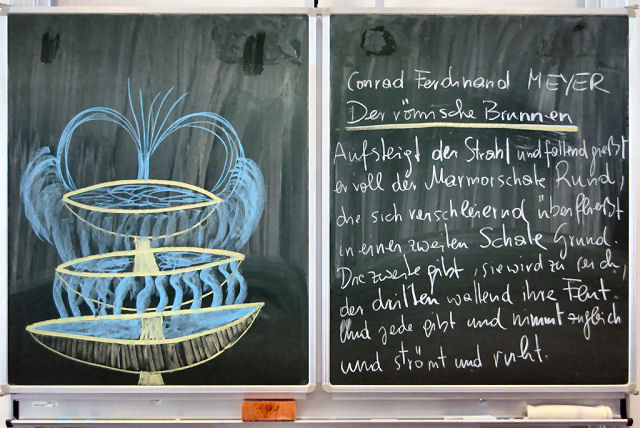 Conrad Ferdinand MEYER
Der römische Brunnen
Aufsteigt der Strahl und fallend gießt
er voll der Marmorschale Rund,
die sich verschleiernd überfließt
in einer zweiten Schale Grund.
Die zweite gibt, sie wird zu reich,
der dritten wallend ihre Flut.
Und jede gibt und nimmt zugleich
und strömt und ruht.